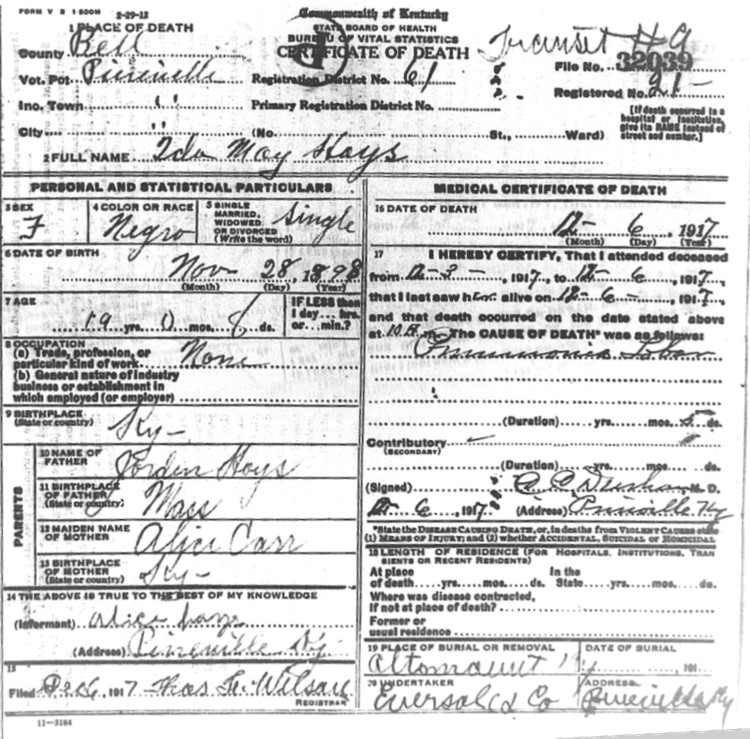 FORM V S 1 500M
2-29-12
Commonwealth of Kentucky
STATE BOARD OF HEALTH
BUREAU OF VITAL STATISTICS
CERTIFICATE OF DEATH
1 PLACE OF DEATH
County Bell
Vot. Pct. Pineville
Inc. Town " "
City "
Registration District No. 61
Primary Registration District No.
(No. St., Ward)
File No. 32039
Registered No. 21-
[If death occurred in a
hospital or institution,
give its NAME instead of
street and number.]
2 FULL NAME Ida May Hays
PERSONAL AND STATISTICAL PARTICULARS
3 SEX
F
4 COLOR OR RACE
Negro
5 SINGLE
MARRIED,
WIDOWED
OR DIVORCED
(Write the word)
Single
6 DATE OF BIRTH
Nov 28, 1898
(Month) (Day) (Year)
7 AGE
19 yrs. 0 mos. 8 ds.
IF LESS than
1 day... hrs.
or... min.?
8 OCCUPATION
(a) Trade, profession, or
particular kind of work None
(b) General nature of industry
business or establishment in
which employed (or employer)
9 BIRTHPLACE
(State or country)
Ky-
PARENTS
10 NAME OF
FATHER
Hays
11 BIRTHPLACE
OF FATHER
(State or country)
Mass
12 MAIDEN NAME
OF MOTHER
Alice Carr
13 BIRTHPLACE
OF MOTHER
(State or country)
Ky-
14 THE ABOVE IS TRUE TO THE BEST OF MY KNOWLEDGE
(Informant) Alice
(Address) Pineville Ky.
15
Filed 1917 Thos. Wilson
REGISTRAR
11-3184
MEDICAL CERTIFICATE OF DEATH
16 DATE OF DEATH
12- 6, 1917
(Month) (Day) (Year)
17 I HEREBY CERTIFY, That I attended deceased
from 12-3-, 1917, to 12- 6, 1917,
that I last saw her alive on 12-6-, 1917,
and that death occurred on the date stated above
at 10 m. The CAUSE OF DEATH* was as follows:
Pneumonia Lobar
(Duration) yrs. mos. 5 ds.
Contributory
(SECONDARY)
(Duration) yrs. mos. ds.
(Signed) M. D.
12-6, 1917 (Address) Pineville Ky
*State the DISEASE CAUSING DEATH, or, in deaths from VIOLENT CAUSES state
(1) MEANS OF INJURY; and (2) whether ACCIDENTAL, SUICIDAL or HOMICIDAL
18 LENGTH OF RESIDENCE (FOR HOSPITALS, INSTITUTIONS, TRAN
SIENTS OR RECENT RESIDENTS)
At place
of death yrs. mos. ds.
In the
State yrs. mos. ds.
Where was disease contracted,
If not at place of death?
Former or
usual residence
19 PLACE OF BURIAL OR REMOVAL
Altamount Ky
DATE OF BURIAL
191
20 UNDERTAKER
Eversole & Co
ADDRESS
Pineville Ky